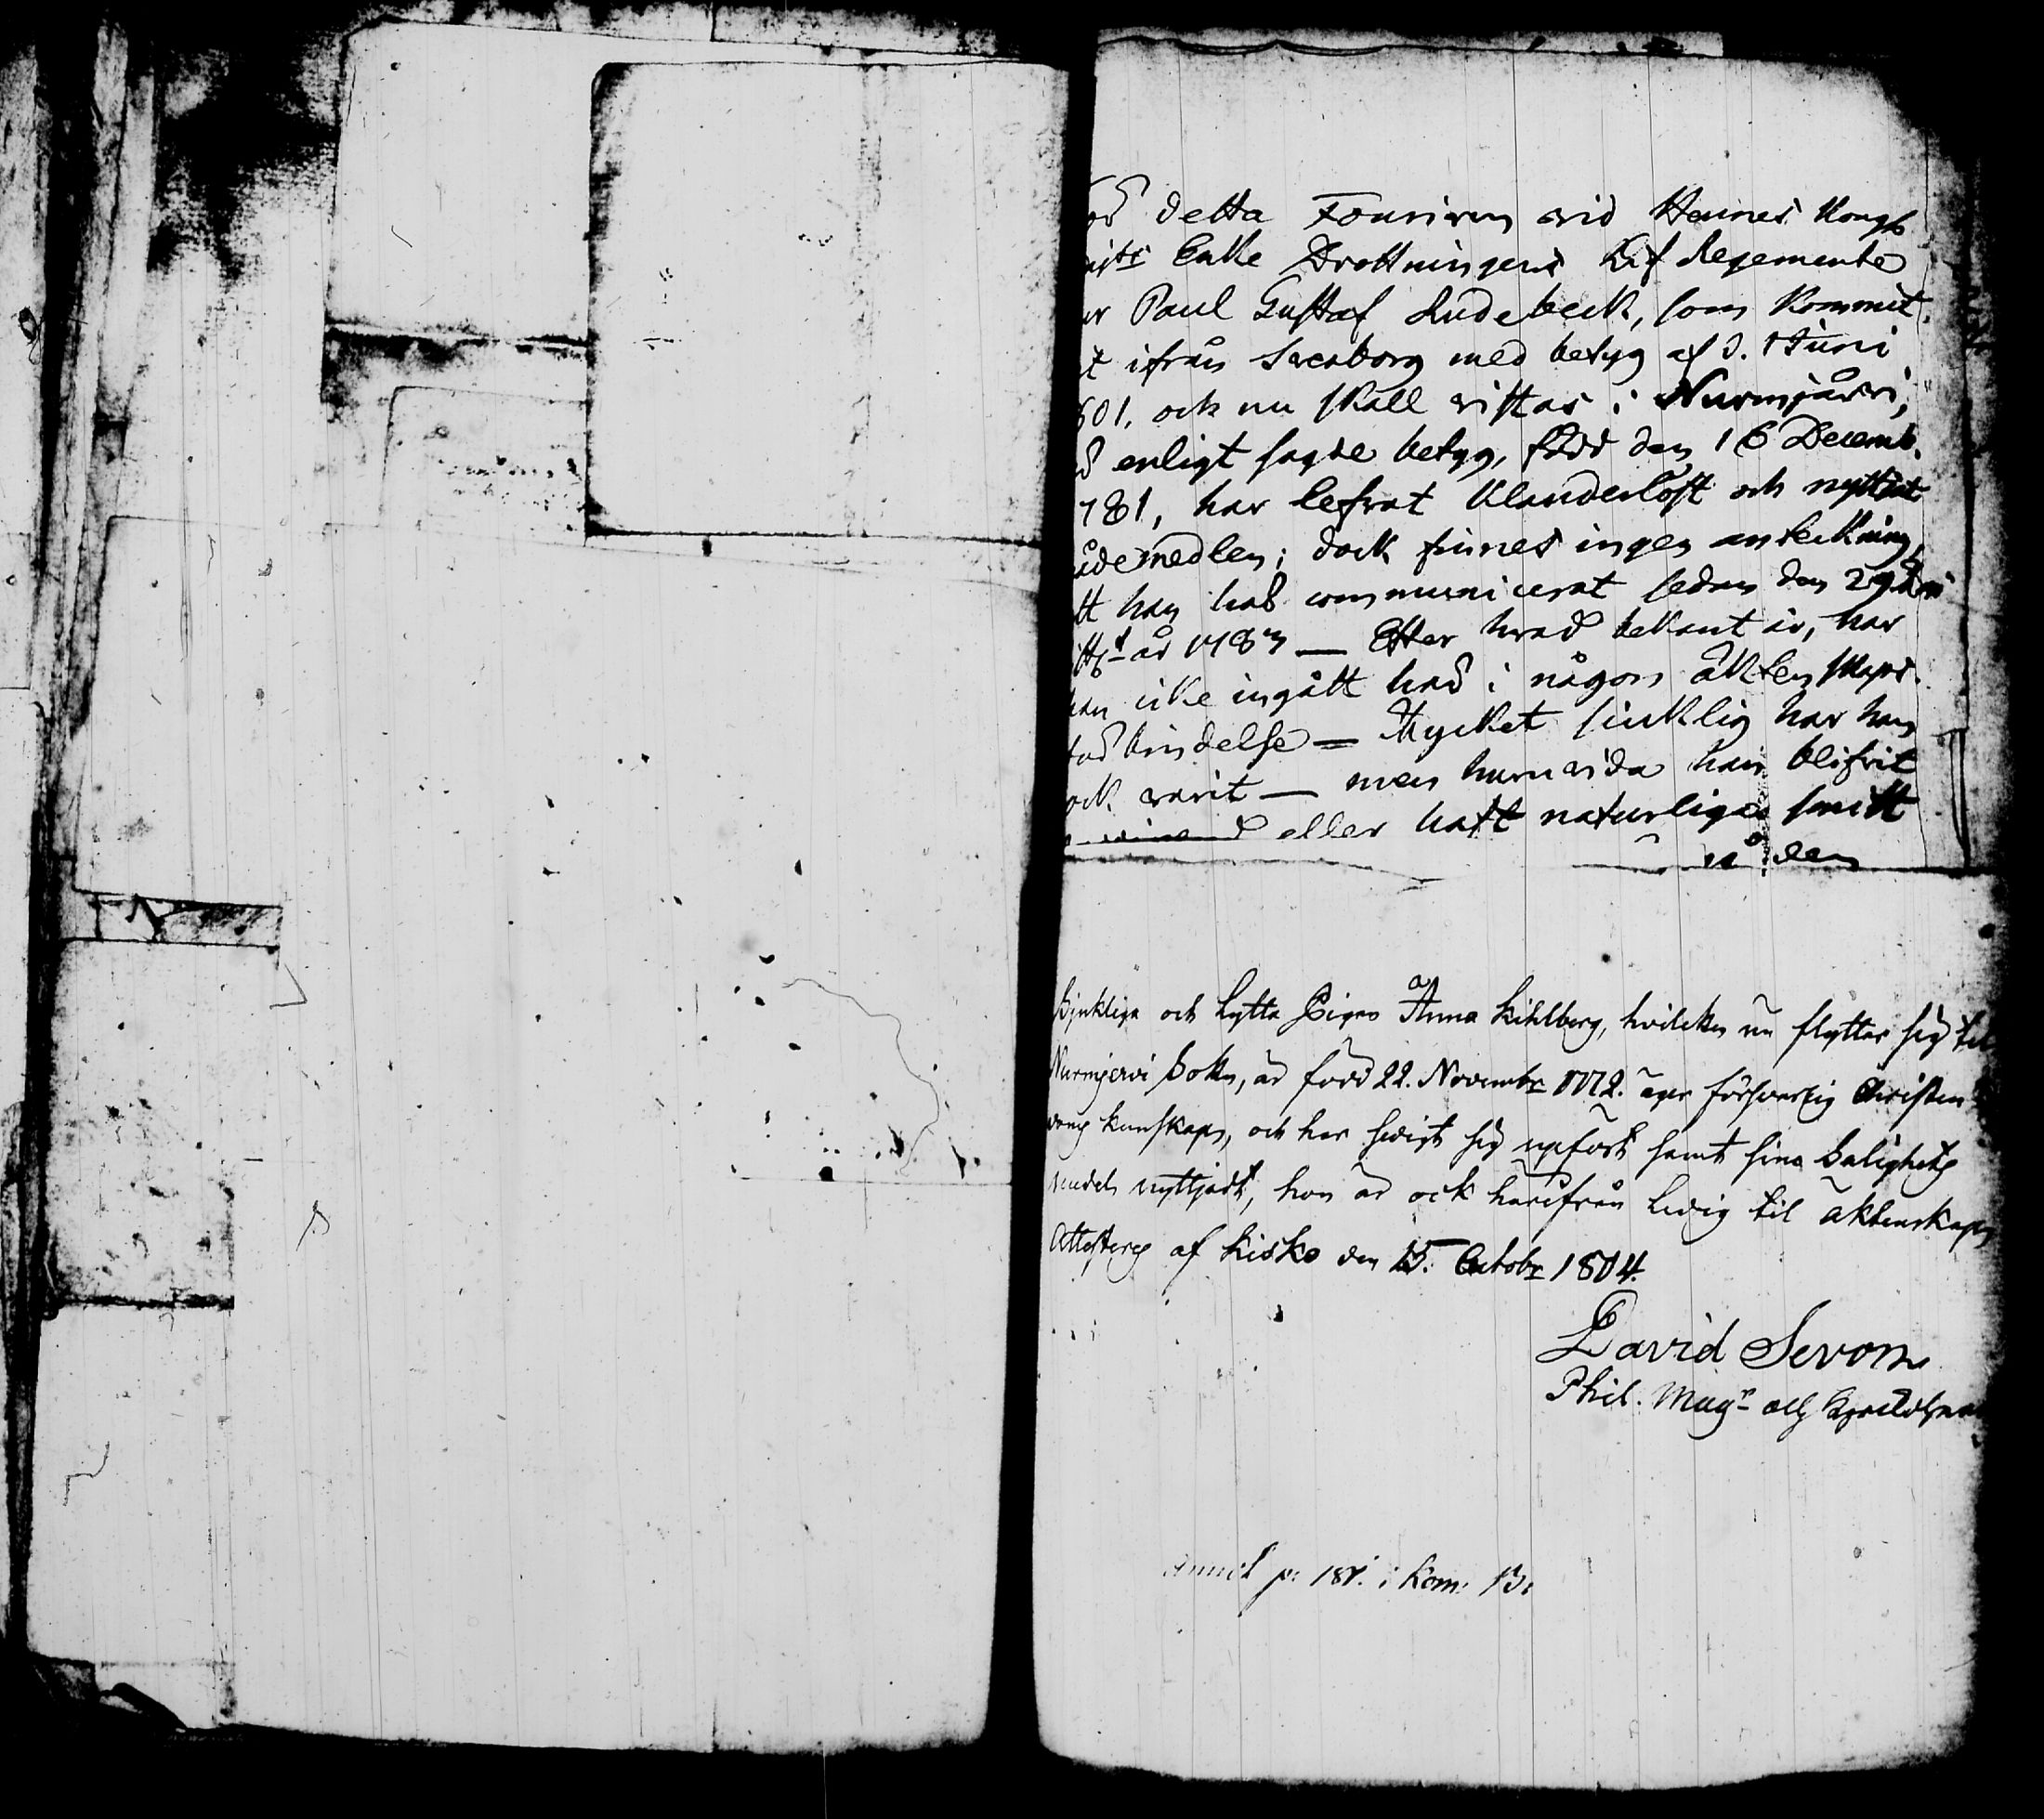 detta Fouriren wid Hennes Kongl
Enke Drottningens Lif Regemente
Paul Gustaf Rudebeck, som kommit
ifrån Sveaborg med betyg af d. 1 Juni
801, och nu skall vistas i Nurmijärvi,
enligt sagde betyg, född den 16 Decemb.
781, har lefvat klanderlöst och nyttjat
ådemedlen; dock finnes ingen anteckning,
tt han har communicerat sedan den 29
år 1783 — Efter hvad bekant är, har
han icke ingått had i någon äktenskaps
bindelse — Mycket siuklig har han
ock varit — men huruvida han blifvit
eller haft naturliga
den
Siukliga och Lytta Pigan Anna Kihlberg, hvilcken nu flyttar sig til
Nurmjervi Sokn, är född 22. Novembr 1772. äger försvarlig Christen
doms kunskap, och har sedigt sig upfört samt sina Salighets
medel nyttjadt, hon är ock härifrån Ledig til äktenskap
Attesteras af Kisko den 15. Octobr 1804.
David Sevon
Phil. Magr och
p: 181. i Kom: B: